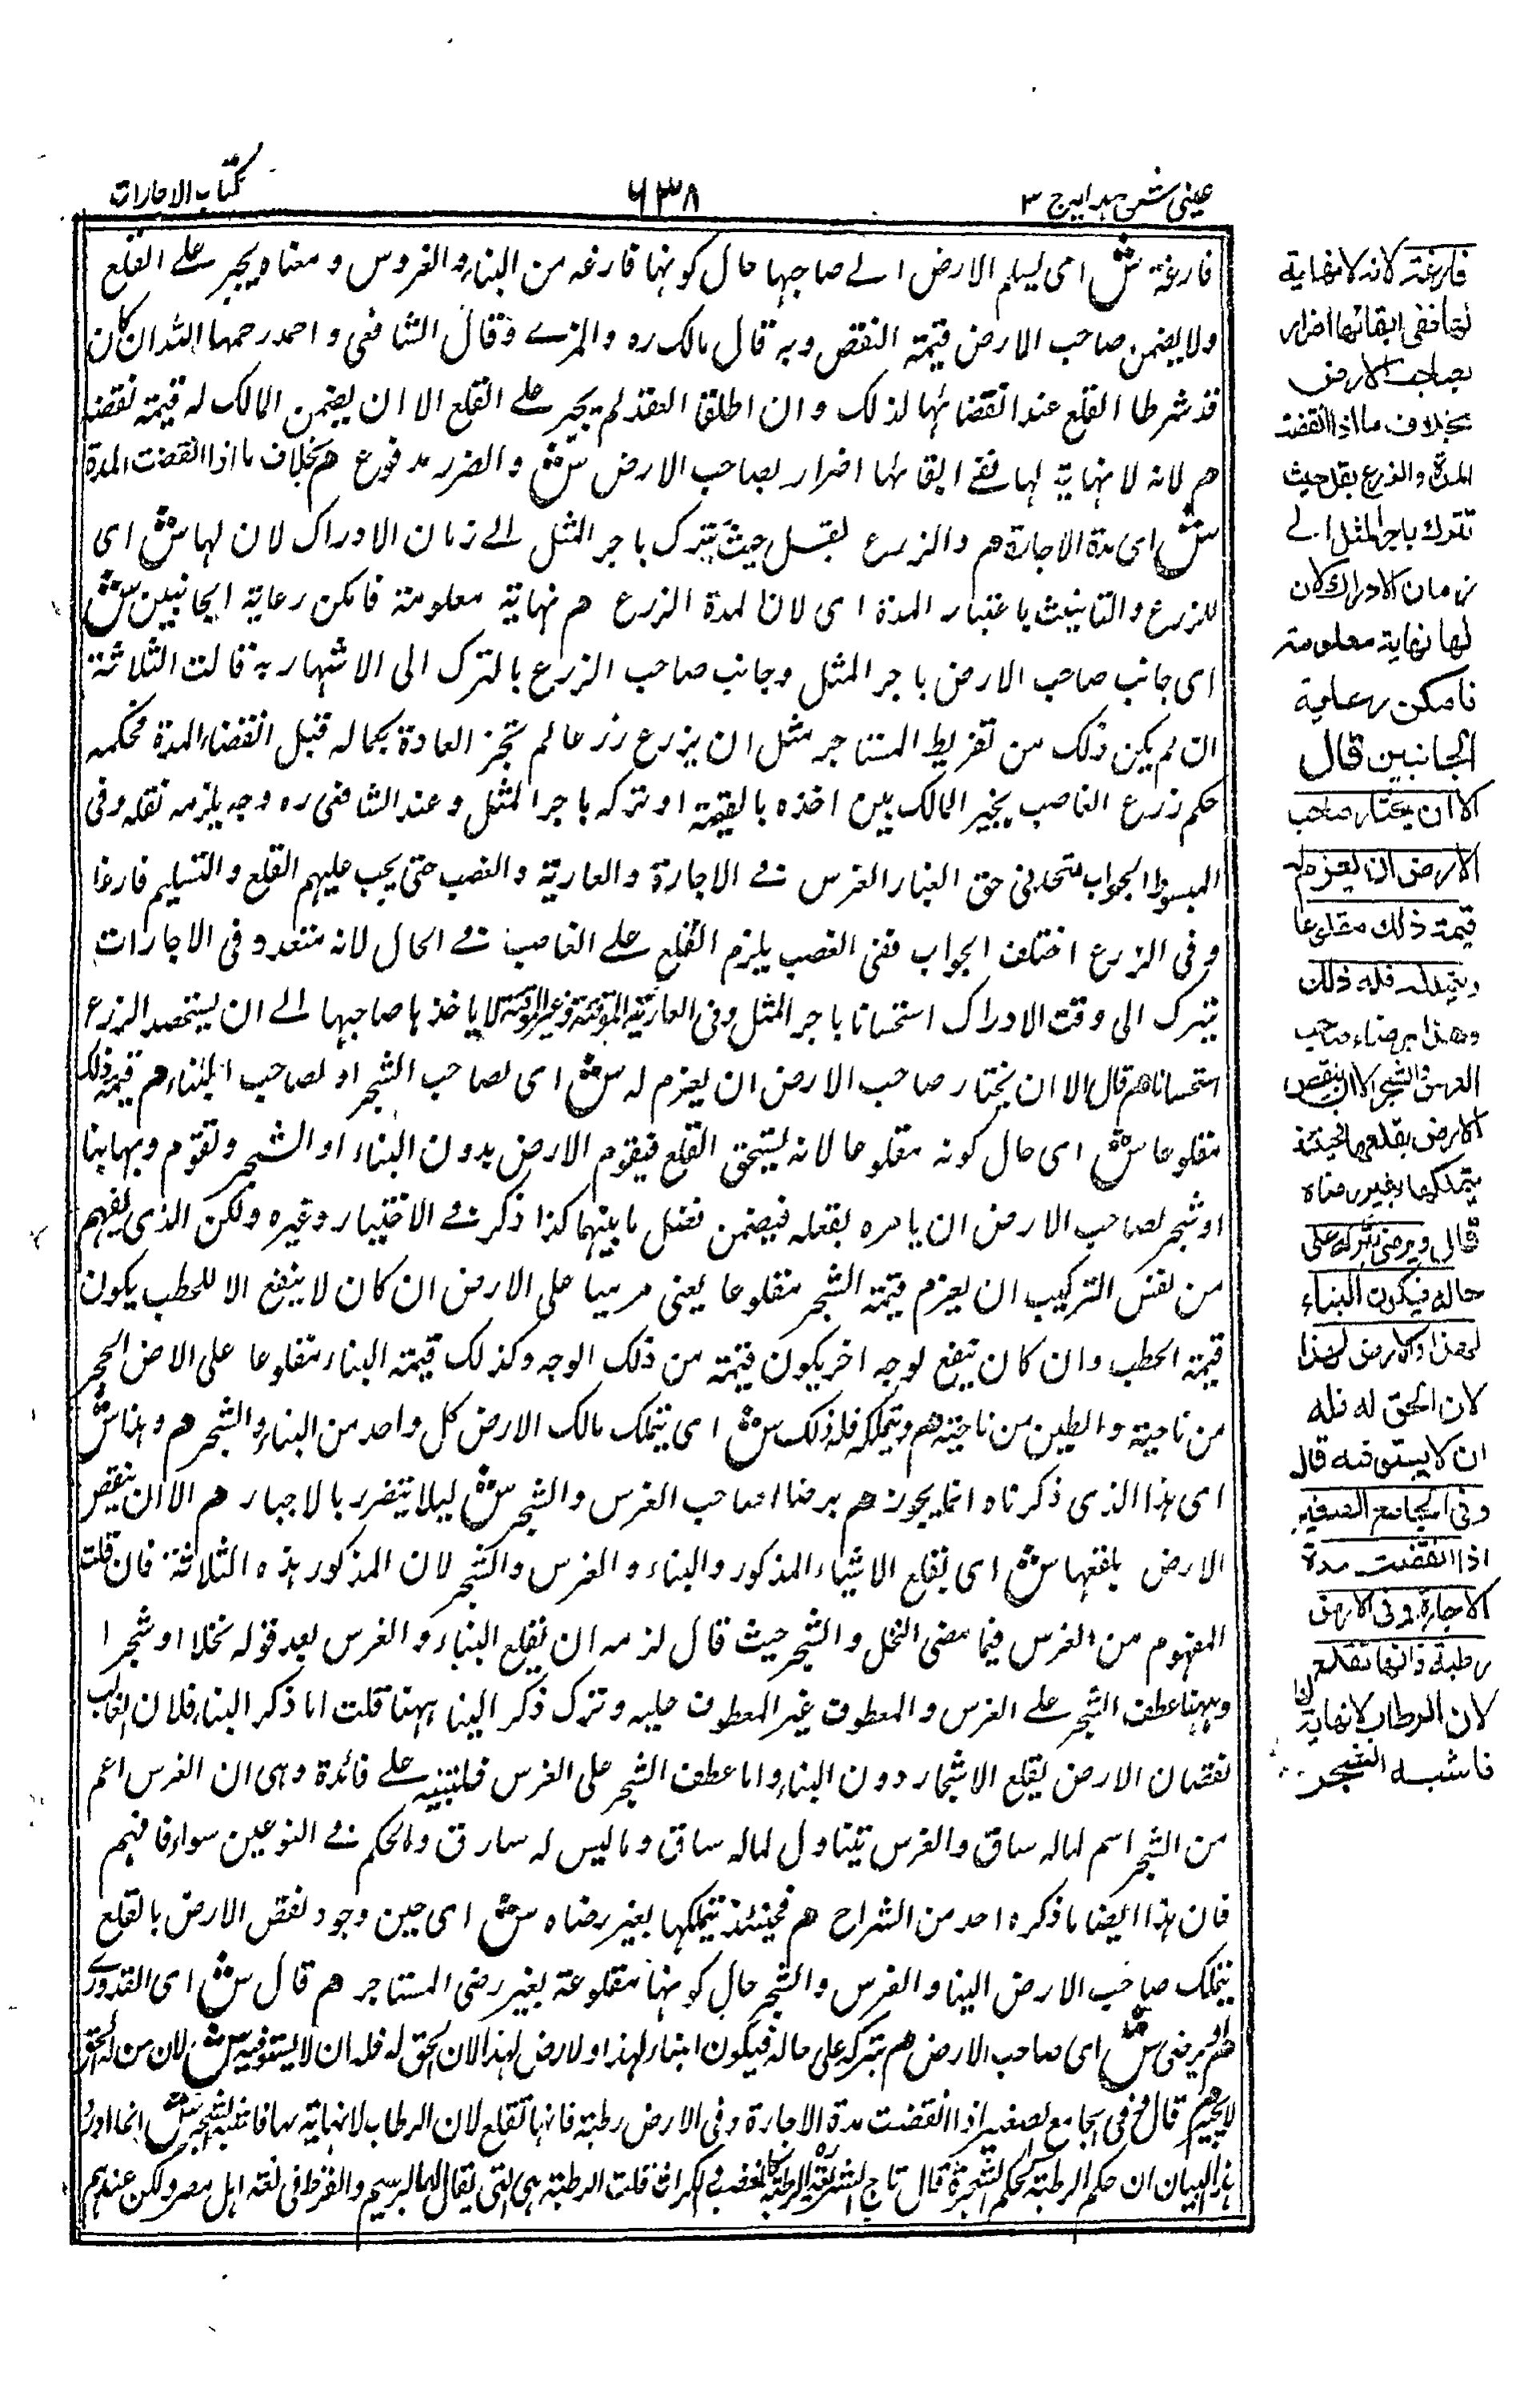 عيني شرح هدايه ج ٣
٦٣٨
كتاب الاجارات
فارغة ش اى ليسلم الارض الے صاحبها حال كونها فارغه من البناء والغروس و معناه يجبر علے القلع
ولا يضمن صاحب الارض قيمة النقص وبه قال مالك ره والمزنے وقال الشافعى و احمد رحمهما الله ان كان
قد شرطا القلع عند انقضائها لذلك و ان اطلقا العقد لم يجبر علے القلع الا ان يضمن المالك له قيمة نقضه
هم لانه لا نهاية لها ففے ابقائها اضرار بصاحب الارض ش والضرر مدفوع هم بخلاف ما اذا انقضت المدة
ش اى مدة الاجارة هم والزرع بقل حيث يترك باجر المثل الے زمان الادراك لان لها ش اى
للزرع والتانيث باعتبار المدة اى لان لمدة الزرع هم نهاية معلومة فامكن رعاية الجانبين ش
اى جانب صاحب الارض باجر المثل وجانب صاحب الزرع بالترك الى الاشهار به قالت الثلاثة
ان لم يكن ذلك من تفريط المستاجر مثل ان يزرع زرعا لم تجز العادة بكماله قبل انقضاء المدة فحكمه
حكم زرع الغاصب يخير المالك بين اخذه بالقيمة او تركه باجر المثل وعند الشافعى ره وجه يلزمه نقله وفى
المبسوط الجواب متحد فى حق البناء والغرس نے الاجارة والعارية والغصب حتى يجب عليهم القلع والتسليم فارغا
وفى الزرع اختلف الجواب ففى الغصب يلزم القلع علے الغاصب نے الحال لانه متعد وفى الاجارات
يترك الى وقت الادراك استحسانا باجر المثل وفى العارية المؤقتة وغير المؤقتة لا ياخذها صاحبها الے ان يستحصد الزرع
استحسانا هم قال الا ان يختار صاحب الارض ان يغرم له ش اى لصاحب الشجر او لصاحب البناء هم قيمة ذلك
مقلوعا ش اى حال كونه مقلوعا لانه يستحق القلع فيقوم الارض بدون البناء او الشجر وتقوم وبها بناء
او شجر لصاحب الارض ان يامره بقعله فيضمن فضل ما بينهما كذا ذكر نے الاختيار وغيره ولكن الذى يفهم
من نفس التركيب ان يغرم قيمة الشجر مقلوعا يعنى مرميا على الارض ان كان لا ينفع الا للحطب يكون
قيمة الحطب وان كان ينفع لوجه اخر يكون قيمته من ذلك الوجه وكذلك قيمة البناء مقلوعا على الارض الحجر
من ناحية والطين من ناحية هم ويتملكه فله ذلك ش اى يتملك مالك الارض كل واحد من البناء والشجر هم وهذا ش
اى هذا الذى ذكرناه انما يجوز هم برضا صاحب الغرس والشجر ش ليلا يتضرر بالاجبار هم الا ان ينقص
الارض بقلعها ش اى بقلع الاشياء المذكور والبناء و الغرس والشجر لان المذكور هذه الثلاثة فان قلت
المفهوم من الغرس فيما مضى النخل والشجر حيث قال لزمه ان يقلع البناء والغرس بعد قوله نخلا او شجرا
وههنا عطف الشجر علے الغرس والمعطوف غير المعطوف عليه وترك ذكر البنا ههنا قلت اما ذكر البناء فلان الغالب
نقصان الارض بقلع الاشجار دون البناء واما عطف الشجر على الغرس فللتنبيه علے فائدة وهى ان الغرس اعم
من الشجر اسم لماله ساق والغرس يتناول لماله ساق وماليس له ساق والحكم نے النوعين سواء فافهم
فان هذا ايضا ما ذكره احد من الشراح هم فحينئذ يتملكها بغير رضاه ش اى حين وجود نقص الارض بالقلع
يتملك صاحب الارض البنا والغرس والشجر حال كونها مقلوعة بغير رضى المستاجر هم قال ش اى القدورى
هم او يرضى ش اى صاحب الارض هم بتركه على حاله فيكون البناء لهذا والارض لهذا لان الحق له فله ان لا يستوفيه ش لان من له الحق
لا يجبر هم قال وفى الجامع الصغير اذا انقضت مدة الاجارة وفى الارض رطبة فانها تقلع لان الرطاب لا نهاية لها فاشبه الشجر ش انما اورد
هذا لبيان ان حكم الرطبة حكم الشجرة قال تاج الشريعة الرطبة كالقضب والكراث قلت الرطبة هى التى يقال لها البرسيم والقرط فى لغة اهل مصر ولكن عندهم
فارغة لانه لا نهاية
لها ففى ابقائها اضرار
بصاحب الارض
بخلاف ما اذا انقضت
المدة والزرع بقل حيث
تترك باجر المثل الے
زمان الادراك لان
لها نهاية معلومة
فامكن رعاية
الجانبين قال
الا ان يختار صاحب
الارض ان يغرم له
قيمة ذلك مقلوعا
ويتملكه فله ذلك
وهذا برضاء صاحب
الغرس والشجر الا ان ينقص
الارض بقلعها فحينئذ
يتملكها بغير رضاه
قال ويرضى بتركه على
حاله فيكون البناء
لهذا والارض لهذا
لان الحق له فله
ان لا يستوفيه قال
وفى الجامع الصغير
اذا انقضت مدة
الاجارة وفى الارض
رطبة فانها تقلع
لان الرطاب لا نهاية لها
فاشبه الشجر